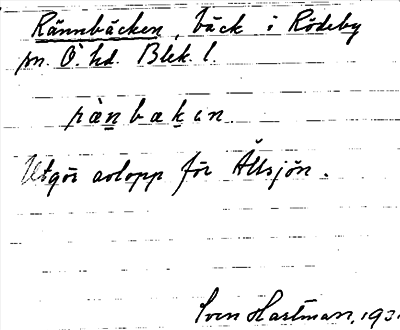 Rännbäcken, bäck i Rödeby
sn. Ö. hd. Blek. l.
Utgör avlopp för Ältsjön.
Sven Hartman, 193